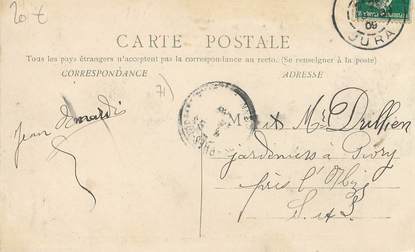 20 €
09
JURA
CARTE POSTALE
Tous les pays étrangers n'acceptent pas la correspondance au recto. (Se renseigner à la poste)
CORRESPONDANCE
ADRESSE
71)
M et Mr Drillien
Jean
jardiniers à Givry
près l'Orbize
S. et L.